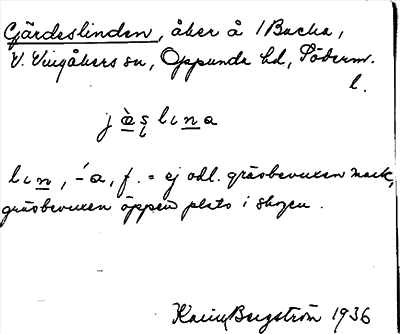 Gärdeslinden, åker å 1 Backa,
V. Vingåkers sn, Oppunda hd, Söderm.
l.
j æ̀ s l ι n a
l ι n, -́a, f. = ej odl. gräsbevuxen mark,
gräsbevuxen öppen plats i skogen.
Karin Bergström 1936